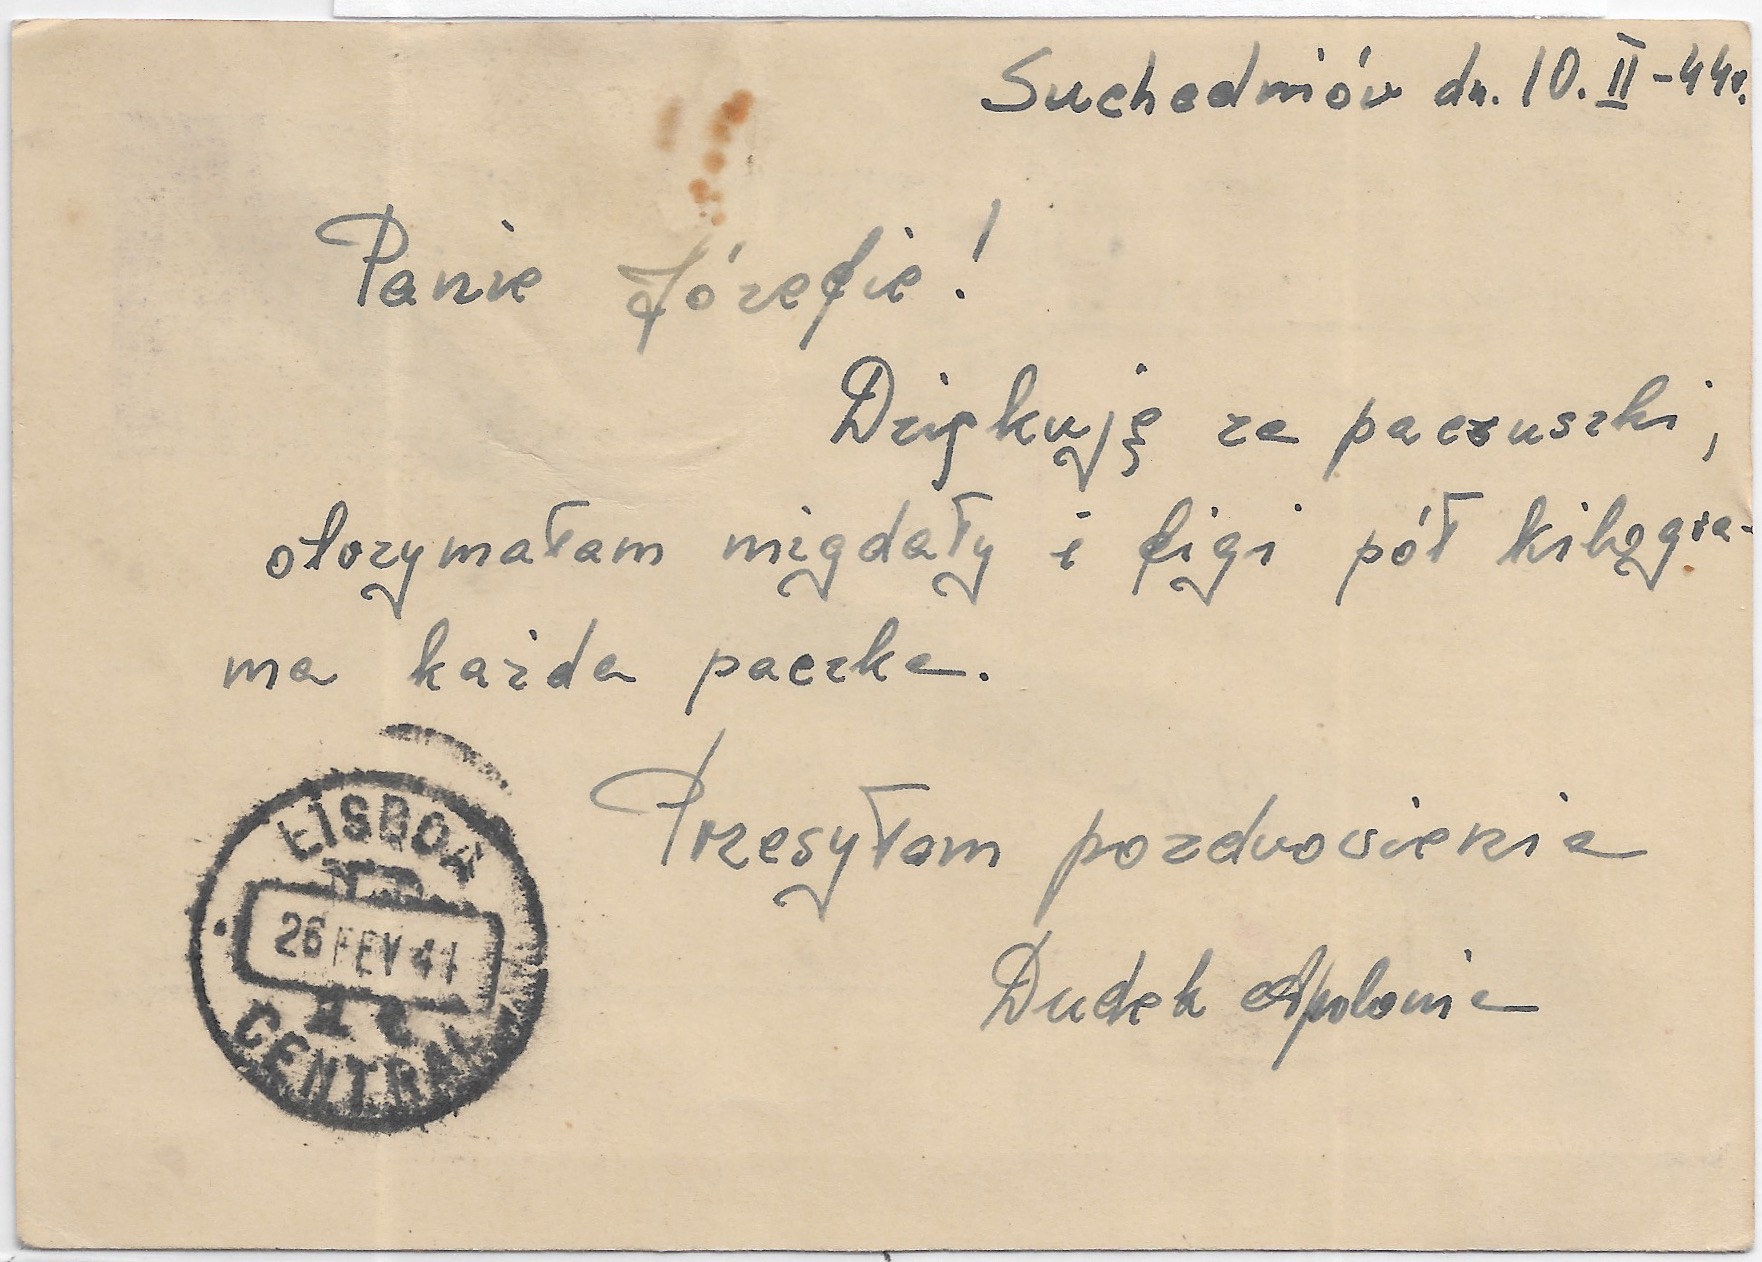 Suchedniów dn. 10. II - 44r.
Panie Józefie!
Dziękuję za paczuszki,
otorzymałam migdały i figi pół kilogra-
ma każda paczka.
Przesyłam pozdrowienia
Dudek Apolonia
LISBOA
26 FEV 44
CENTRAL